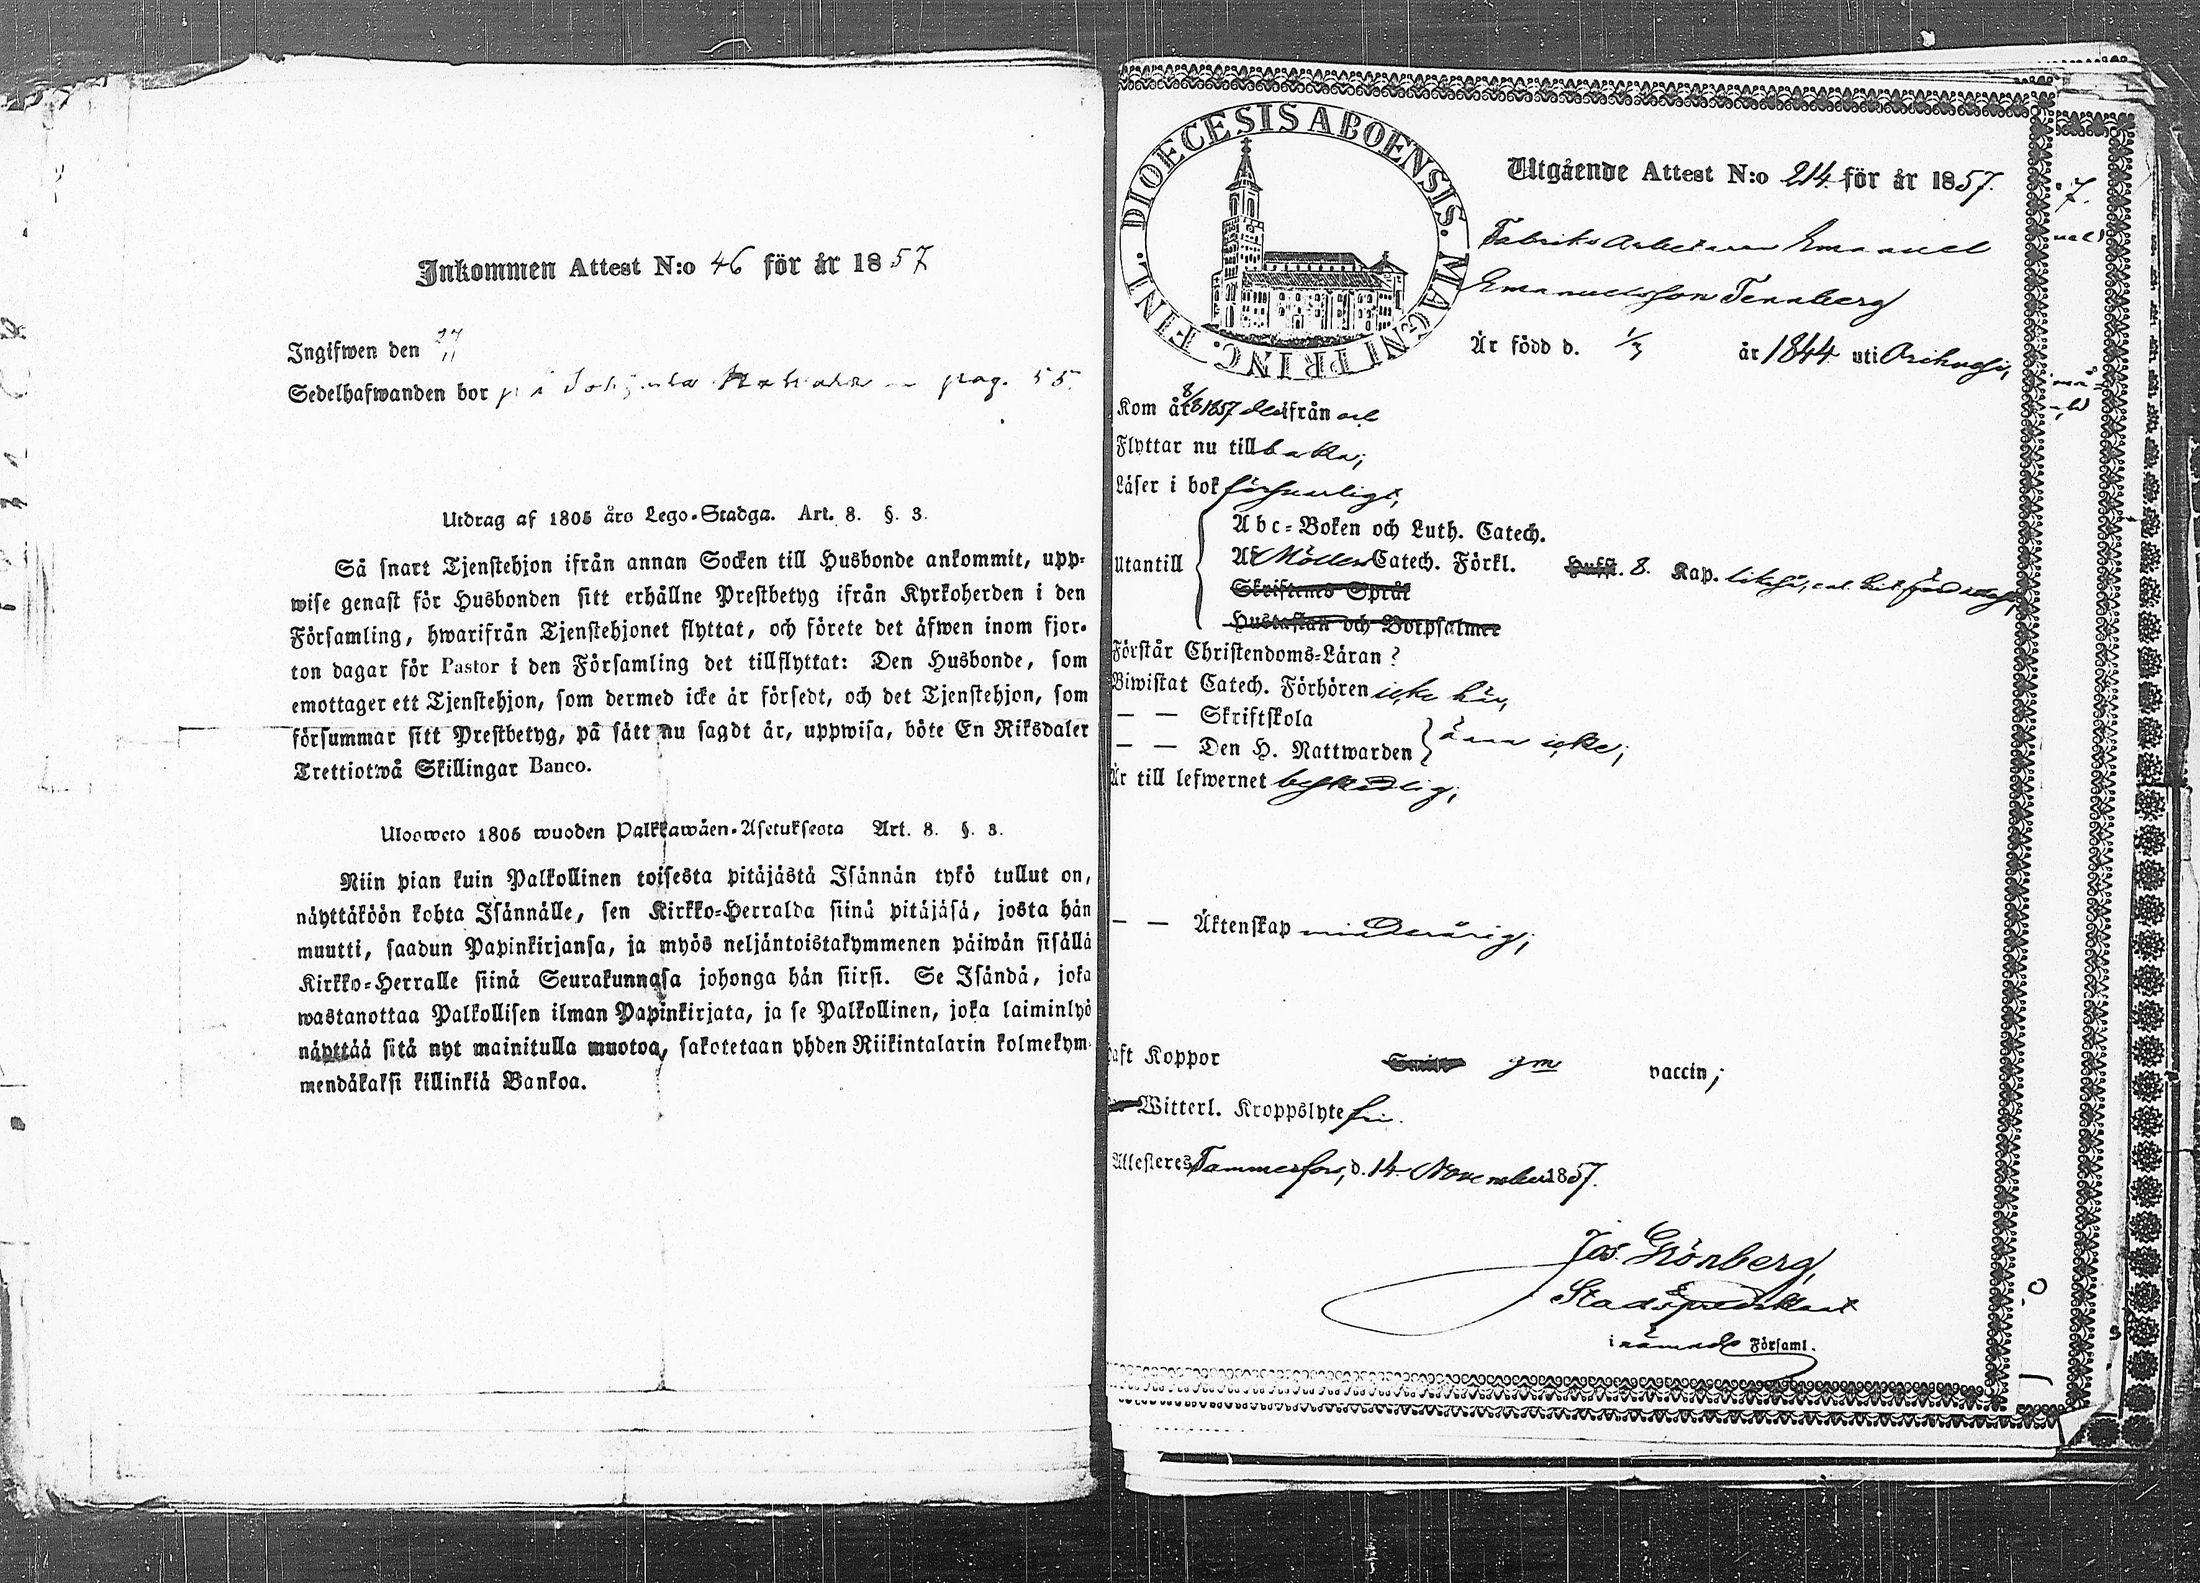 Inkommen Attest N:o 46 för år 1857
Ingifwen den 27/11
Sedelhafwanden bor på pag. 55.
Utdrag af 1805 års Lego-Stadga. Art. 8. §. 3.
Så snart Tjenstehjon ifrån annan Socken till Husbonde ankommit, upp-
wise genast för Husbonden sitt erhållne Prestbetyg ifrån Kyrkoherden i den
Församling, hwarifrån Tjenstehjonet flyttat, och förete det äfwen inom fjor-
ton dagar för Pastor i den Församling det tillflyttat: Den Husbonde, som
emottager ett Tjenstehjon, som dermed icke är försedt, och det Tjenstehjon, som
försummar sitt Prestbetyg, på sätt nu sagdt är, uppwisa, böte En Riksdaler
Trettiotwå Skillingar Banco.
Ulosweto 1805 wuoden Palkkawäen-Asetuksesta Art. 8. §. 3.
Niin pian kuin Palkollinen toisesta pitäjästä Isännän tykö tullut on,
näyttäköön kohta Isännälle, sen Kirkko-Herralda siinä pitäjäsä, josta hän
muutti, saadun Papinkirjansa, ja myös neljäntoistakymmenen päiwän sisällä
Kirkko-Herralle siinä Seurakunnasa johonga hän siirsi. Se Isändä, joka
wastanottaa Palkollisen ilman Papinkirjata, ja se Palkollinen, joka laiminlyö
näyttää sitä nyt mainitulla muotoa, sakotetaan yhden Riikintalarin kolmekym-
mendäkaksi killinkiä Bankoa.
DIOECESIS ABOENSIS. MAGNI PRINC. FINL.
Utgående Attest N:o 214 för år 1857.
Fabriks Arbetaren Emanuel
Emanuelsson Tennberg
Är född d. 1/3 år 1844 uti Orihvesi,
Kom år 8/8 1857 ifrån
Flyttar nu tillbaka;
Läser i bok försvarligt,
Abc-Boken och Luth. Catech.
Utantill Af Möllers Catech. Förkl. Hufst. 8. Kap.
Skriftenes Språk
Hustaflan och Botpsalmer
Förstår Christendoms-Läran?
Biwistat Catech. Förhören icke här,
— — Skriftskola
— — Den H. Nattwarden ännu icke;
Är till lefwernet beskedlig;
— — Äktenskap minderårig;
Haft Koppor gm vaccin;
Witterl. Kroppslyte fri.
Attesteres Tammerfors, d. 14 November 1857.
Jos. Grönberg,
Stadspredikant
i nämnde Församl.